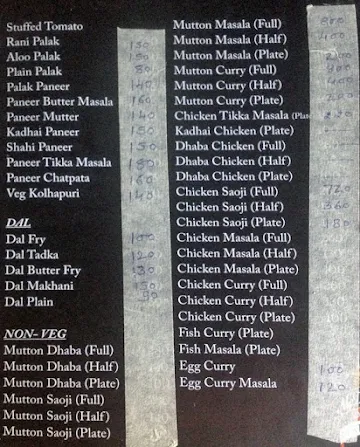 Stuffed Tomato
Rani Palak 150
Aloo Palak 150
Plain Palak 80
Palak Paneer 140
Paneer Butter Masala 160
Paneer Mutter 140
Kadhai Paneer 150
Shahi Paneer 150
Paneer Tikka Masala 180
Paneer Chatpata 160
Veg Kolhapuri 140
DAL
Dal Fry 100
Dal Tadka 120
Dal Butter Fry 130
Dal Makhani 150
Dal Plain 90
NON-VEG
Mutton Dhaba (Full)
Mutton Dhaba (Half)
Mutton Dhaba (Plate)
Mutton Saoji (Full)
Mutton Saoji (Half)
Mutton Saoji (Plate)
Mutton Masala (Full) 800
Mutton Masala (Half) 400
Mutton Masala (Plate) 200
Mutton Curry (Full) 800
Mutton Curry (Half) 400
Mutton Curry (Plate) 200
Chicken Tikka Masala (Plate
Kadhai Chicken (Plate)
Dhaba Chicken (Full)
Dhaba Chicken (Half)
Dhaba Chicken (Plate)
Chicken Saoji (Full) 720
Chicken Saoji (Half) 360
Chicken Saoji (Plate) 180
Chicken Masala (Full)
Chicken Masala (Half)
Chicken Masala (Plate)
Chicken Curry (Full)
Chicken Curry (Half)
Chicken Curry (Plate)
Fish Curry (Plate)
Fish Masala (Plate)
Egg Curry 100
Egg Curry Masala 120